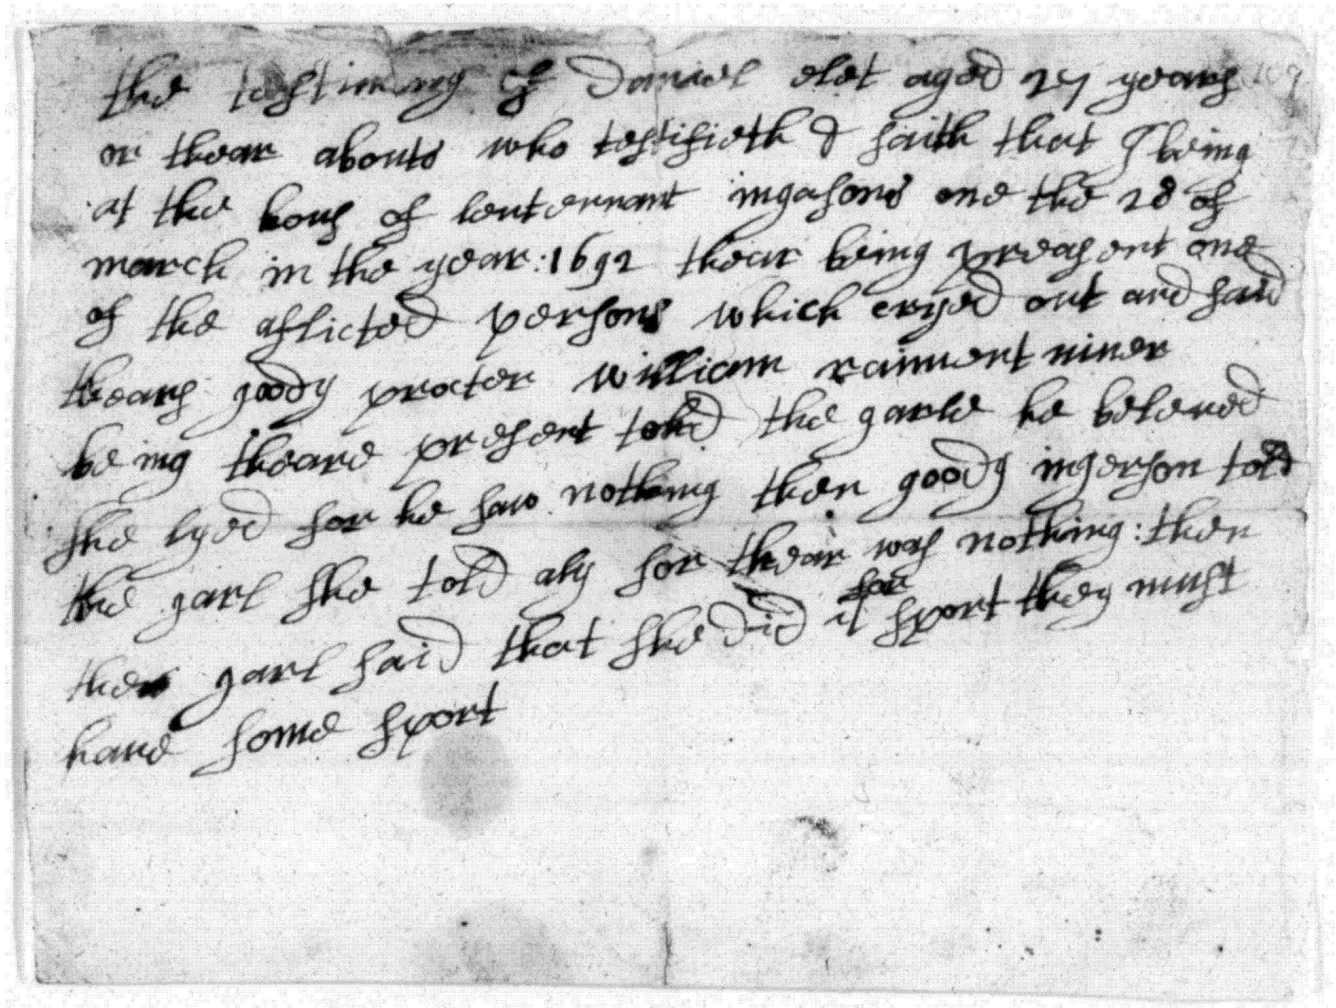 the testimmony of Daniel elet aged 27 years
or thear abouts who testifieth & saith that I being
at the hous of leutennant ingasons one the 28 of
march in the year: 1692 thear being preasent one
of the aflicted persons which cryed out and said
thears goody procter william raiment niner
being theare present told the garle he beleved
she lyed for he saw nothing then goody ingerson told
the garl she told aly for thear was nothing: then
the garl said that she did it for sport they must
have some sport